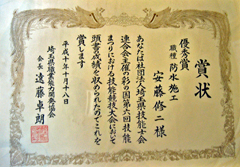 賞状
優秀賞
職種 防水施工
安藤修二様
あなたは社団法人埼玉県技能士会
連合会主催の彩の国第三回技能
まつりにおける技能競技大会において
頭書の成績を収められたのでこれを
賞します
平成十年十月十八日
埼玉県職業能力開発協会
会長 遠藤卓朗